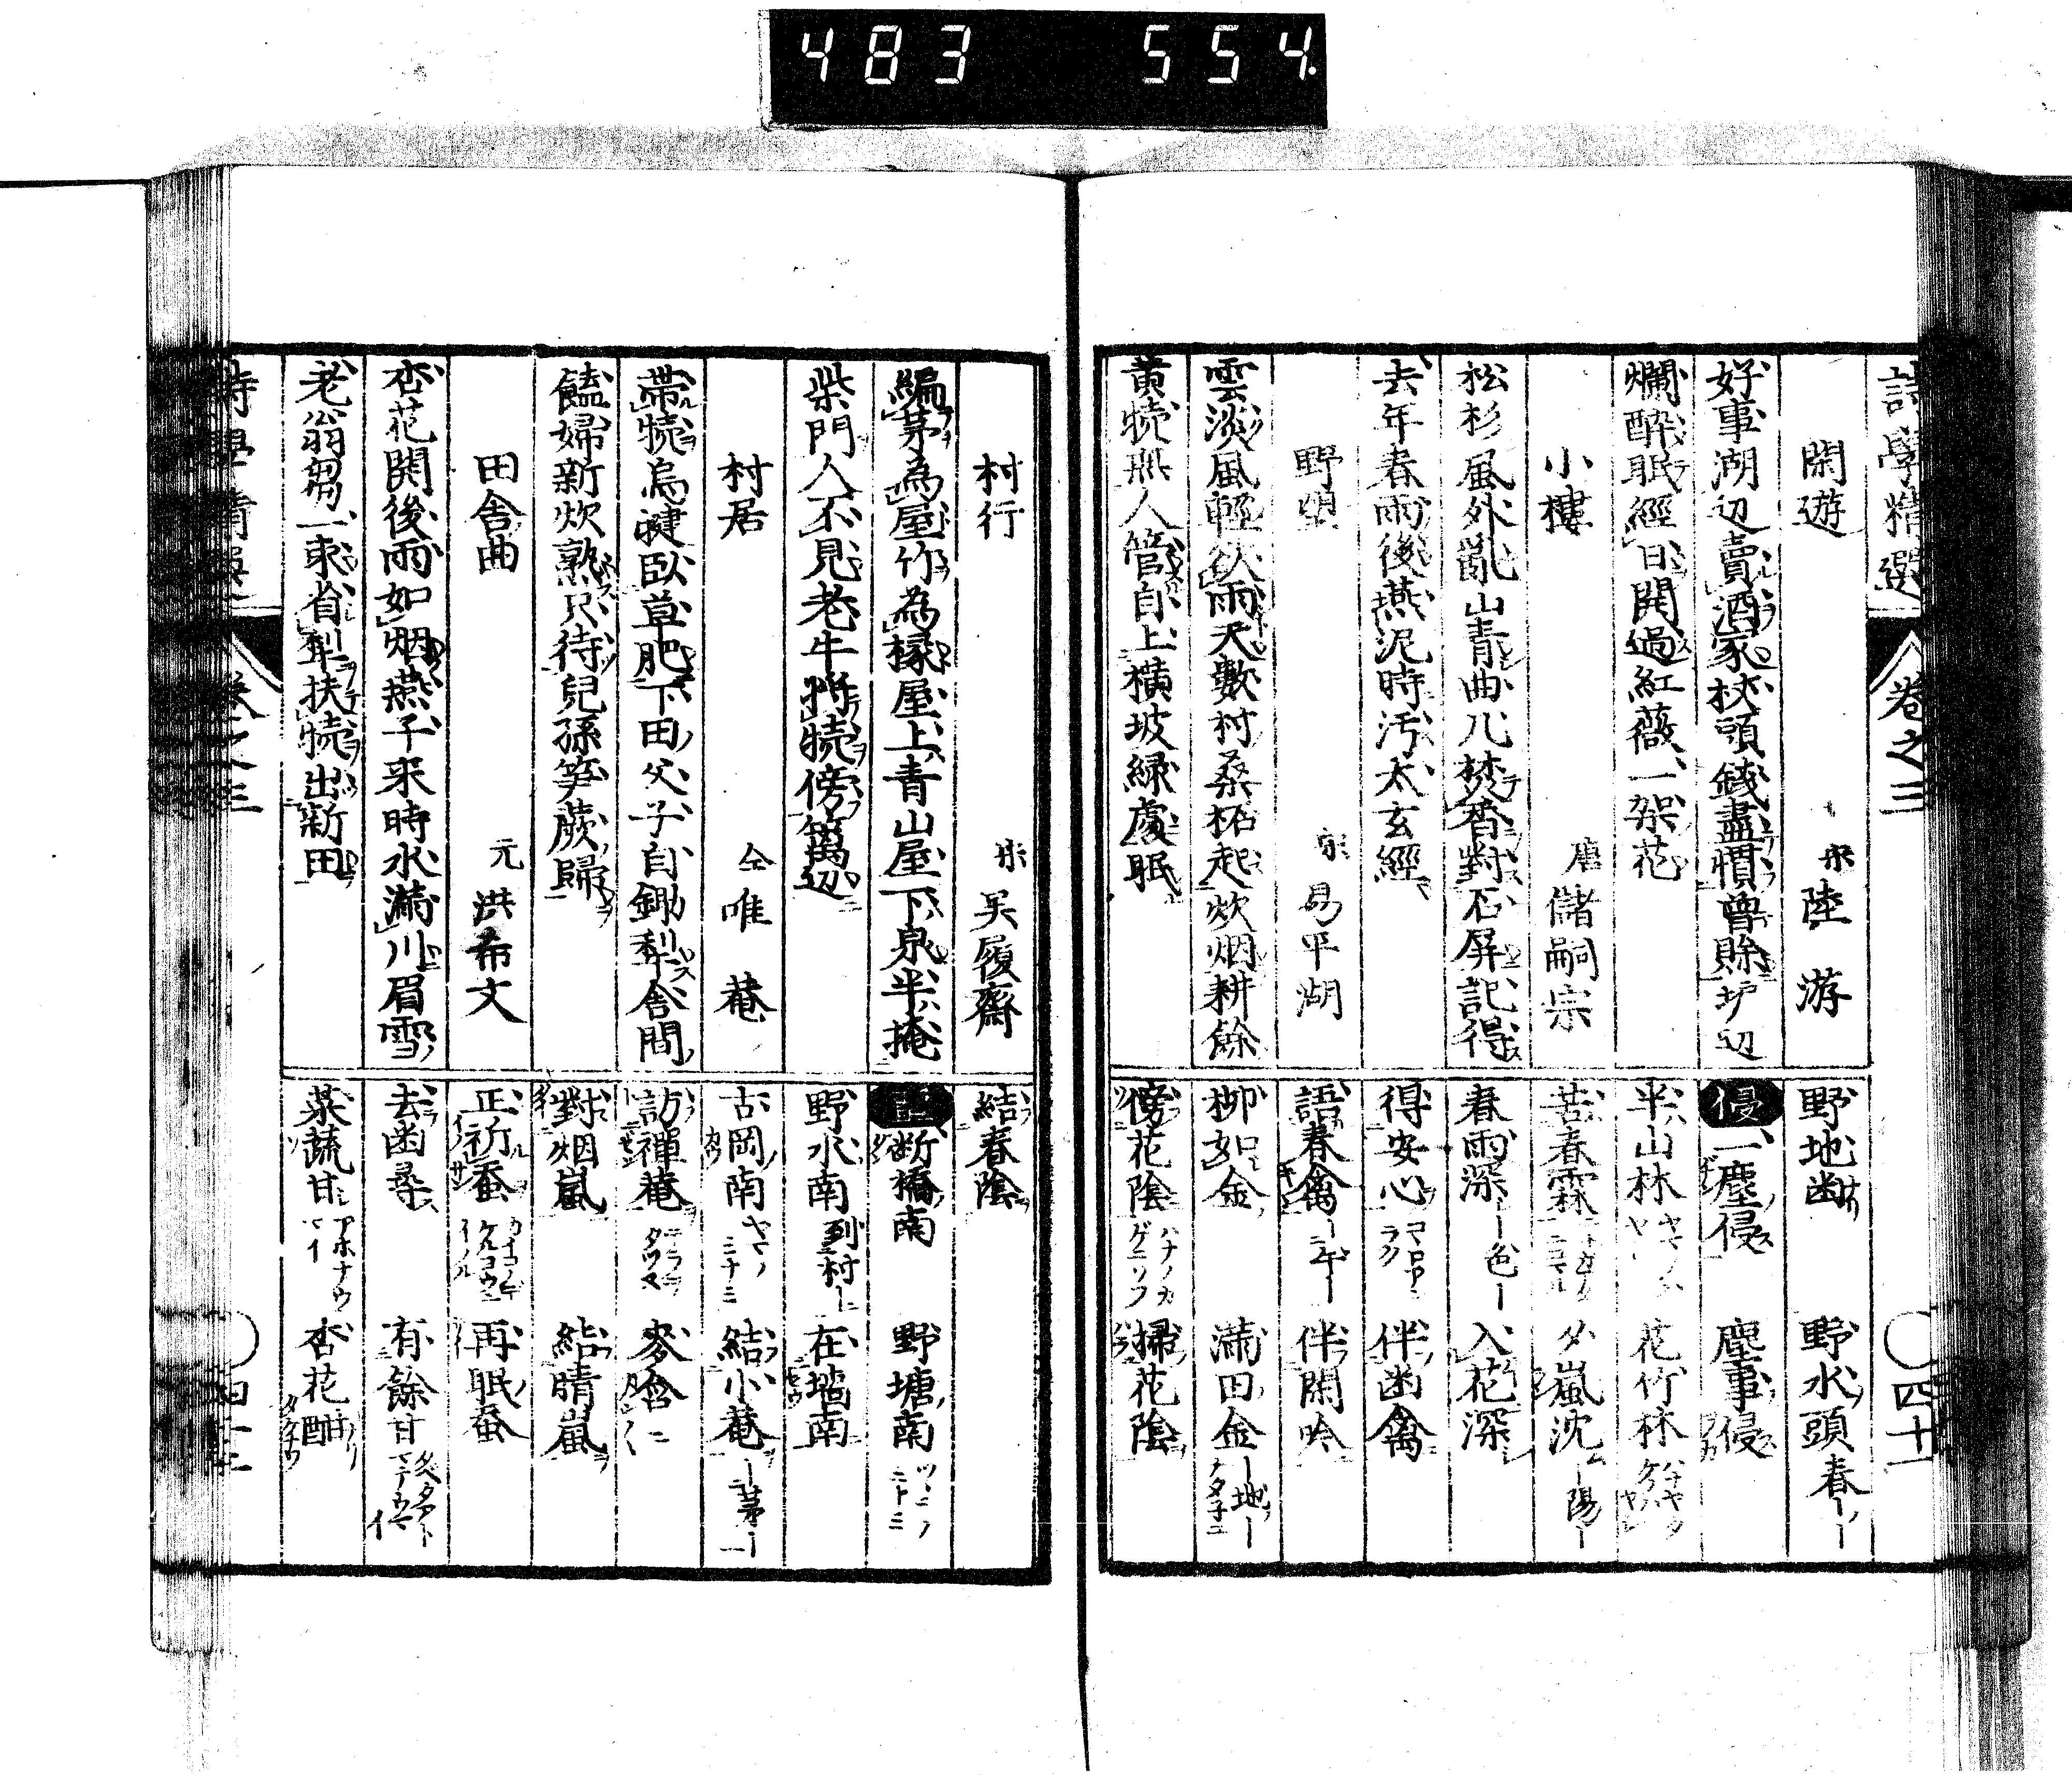 483 554
詩學精選 卷之三 四十一
閑遊 宋 陸游
好事湖辺賣酒家杖頭錢盡慣曽賒垆辺
爛酔眠經日開過紅薇一架花
小樓 唐 儲嗣宗
松杉風外亂山青曲几焚香對石屏記得
去年春雨後燕泥時汚太玄經
野望 宋 易平湖
雲淡風輕欲雨天數村桑柘起炊烟耕餘
黄犢無人管自上横坡緑處眠
野地幽 野水頭 春
侵 一塵侵 塵事侵
半山林 花竹林
苦春霖 夕嵐沈 陽
春雨深 色 入花深
得安心 伴幽禽
語春禽 伴閑吟
柳如金 滿田金 地
傍花陰 掃花陰
村行 宋 吴履齋
編茅為屋竹為椽屋上青山屋下泉半掩
柴門人不見老牛將犢傍籬辺
村居 仝 唯菴
帶犢烏犍臥草肥下田父子自鋤犁舎間
饁婦新炊熟只待兒孫笋蕨歸
田舎曲 元 洪希文
杏花開後雨如烟燕子来時水滿川眉雪
老翁芻一束省犁扶犢出新田
結春陰
断橋南 野塘南
野水南 到村 在墙南
古岡南 結小菴 茅
訪禪菴 麥含
對烟嵐 結晴嵐
正祈蚕 再眠蚕
去幽尋 有餘甘
菜蔬甘 杏花酣
卷之三